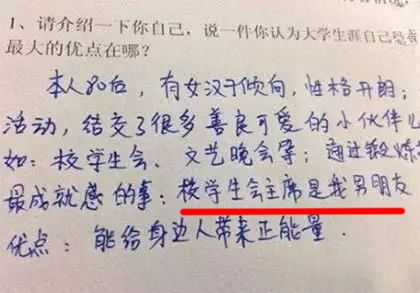 1、请介绍一下你自己，说一件你认为大学生涯自己
最大的优点在哪？
本人80后，有女汉子倾向，性格开朗；
活动，结交了很多善良可爱的小伙伴
如：校学生会、文艺晚会等；通过锻炼
最成就感的事：校学生会主席是我男朋友
优点：能给身边人带来正能量．